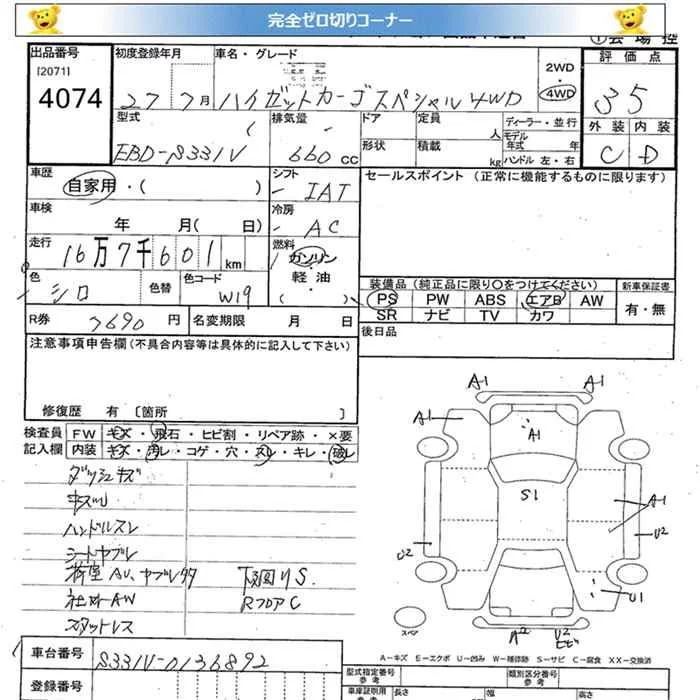 完全ゼロ切りコーナー
出品番号
[2071]
4074
初度登録年月
27 7月
車名・グレード
ハイゼットカーゴスペシャル 4WD
2WD
・
4WD
評価点
35
外装 内装
C D
型式
EBD-S331V
排気量
660 CC
ドア
形状
定員
人
積載
kg
ディーラー・並行
モデル
年式 年
ハンドル 左・右
車歴
自家用・( )
シフト
IAT
セールスポイント (正常に機能するものに限ります)
車検
年 月( 日)
冷房
AC
走行
16万7千601km
燃料
ガソリン
軽・油
( )
色
シロ
色替
色コード
W19
装備品 (純正品に限り○をつけてください)
PS PW ABS エアB AW
SR ナビ TV カワ
新車保証書
有・無
R券
7690 円
名変期限 月 日
後日品
注意事項申告欄 (不具合内容等は具体的に記入して下さい)
修復歴 有 [箇所 ]
検査員
記入欄
FW キズ・飛石・ヒビ割・リペア跡・×要
内装 キズ・汚レ・コゲ・穴・スレ・キレ・破レ
ダッシュキズ
キズ
ハンドルスレ
シートヤブレ
荷室AU、ヤブレ
下回りS
社外AW
RフロアC
スタットレス
A-1
A-1
A-1
A1
S1
A-1
U2
U2
U1
スペア
A2
U2
ヒビ
A-キズ E-エクボ U-凹み W-補修跡 S-サビ C-腐食 XX-交換済
車台番号
S331V-0136892
登録番号
型式指定番号
参考
類別区分番号
参考
車庫証明用
参考
長さ
幅
高さ